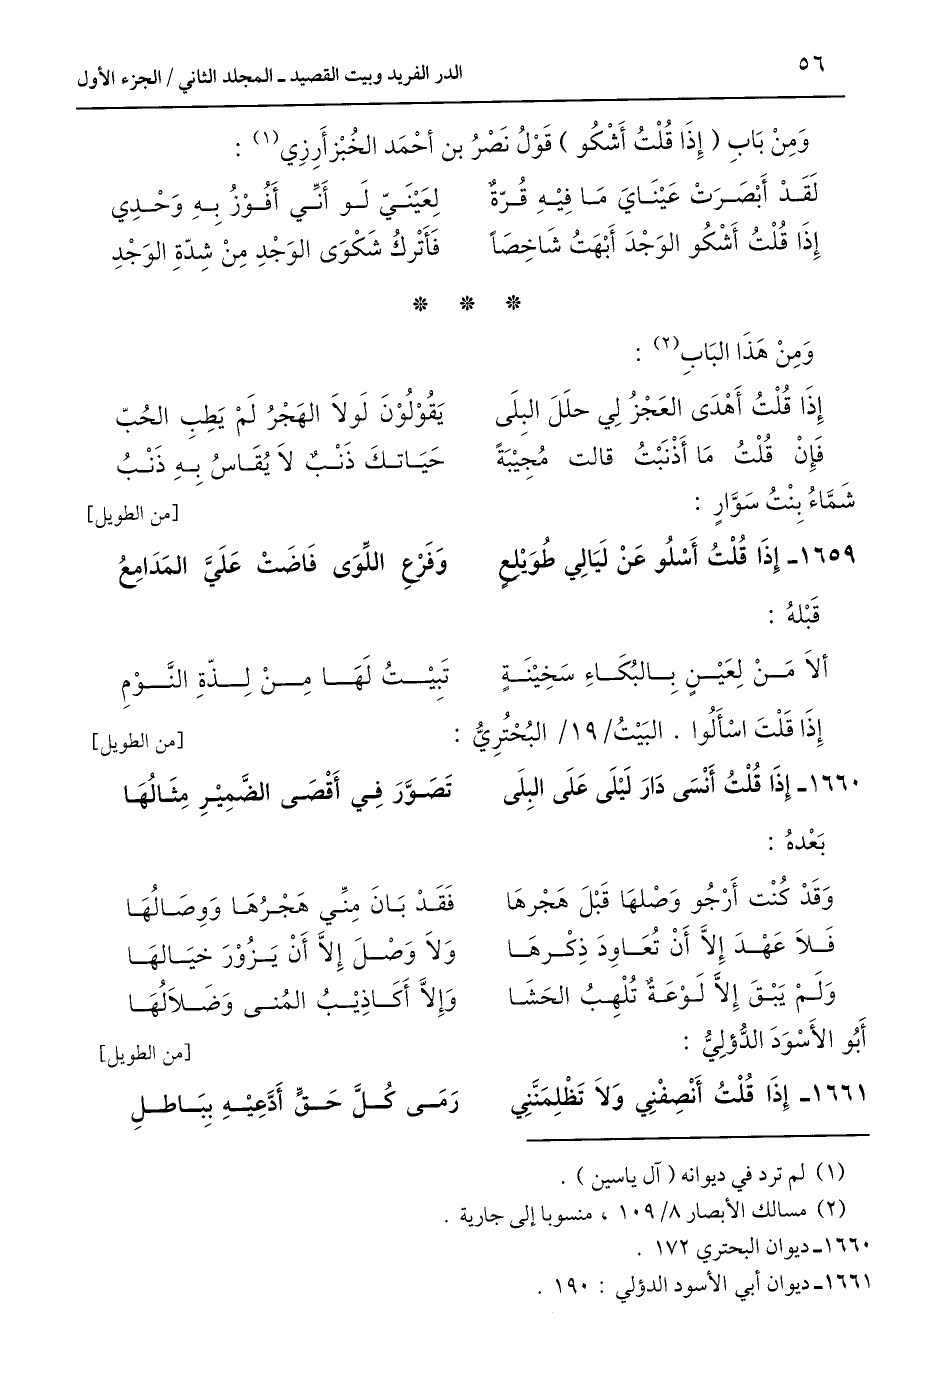 ٥٦
الدر الفريد وبيت القصيد ـ المجلد الثاني / الجزء الأول
وَمِنْ بَابِ ( إِذَا قُلْتُ أَشْكُو ) قَوْلُ نَصْرُ بن أحْمَد الخُبْز أَرزِي(١) :
لَقَدْ أَبْصَرَتْ عَيْنَايَ مَا فِيْهِ قُرّةٌ لِعَيْنَيّ لَو أَنّي أَفُوْزُ بِهِ وَحْدِي
إِذَا قُلْتُ أَشْكُو الوَجْدَ أَبْهَتُ شَاخِصَاً فَأَتْركُ شَكْوَى الوَجْدِ مِنْ شِدّةِ الوَجْدِ
* * *
وَمِنْ هَذَا البَابِ(٢) :
إِذَا قُلْتُ أَهْدَى العَجْزُ لِي حلَلَ البلَى يَقُوْلُوْنَ لَولاَ الهَجْرُ لَمْ يَطِبِ الحُبّ
فَإِنْ قُلْتُ مَا أَذْنَبْتُ قالت مُجِيْبَةً حَيَاتكَ ذَنْبٌ لاَ يُقَاسُ بِهِ ذَنْبُ
شَمَّاءُ بِنْتُ سَوَّارٍ : [من الطويل]
١٦٥٩ـ إِذَا قُلْتُ أَسْلُو عَنْ لَيَالِي طُوَيْلِعٍ وَفَرْعِ اللِّوَى فَاضَتْ عَلَيَّ المَدَامِعُ
قَبْلَهُ :
ألاَ مَنْ لِعَيْنٍ بِالبُكَاءِ سَخِيْنَةٍ تَبِيْتُ لَهَا مِنْ لِذّةِ النَّوْمِ
إِذَا قَلْتَ اسْأَلُوا . البَيْتُ/ ١٩/ البُحْتُرِيُّ : [من الطويل]
١٦٦٠ـ إِذَا قُلْتُ أَنْسَى دَارَ لَيْلَى عَلَى البِلَى تَصَوَّرَ فِي أَقْصَى الضَّمِيْرِ مِثَالُهَا
بَعْدهُ :
وَقَدْ كُنْت أَرْجُو وَصْلهَا قَبْلَ هَجْرِهَا فَقَدْ بَانَ مِنِّي هَجْرُهَا وَوِصَالُهَا
فَلاَ عَهْدَ إِلاَّ أَنْ تُعَاودَ ذِكْرهَا وَلاَ وَصْلَ إِلاَّ أَنْ يَزُوْرَ خيَالهَا
وَلَمْ يَبْقَ إِلاَّ لَوْعَةٌ تُلْهِبُ الحَشَا وَإِلاَّ أَكَاذيْبُ المُنى وَضَلاَلُهَا
أَبُو الأَسْوَدَ الدُّؤلِيُّ : [من الطويل]
١٦٦١ـ إِذَا قُلْتُ أَنْصِفْنِي وَلاَ تَظْلِمَنَّنِي رَمَى كُلَّ حَقٍّ أَدَّعِيْهِ بِبَاطلِ
(١) لم ترد في ديوانه ( آل ياسين ) .
(٢) مسالك الأبصار ٨/ ١٠٩ ، منسوبا إلى جارية .
١٦٦٠ـ ديوان البحتري ١٧٢ .
١٦٦١ـ ديوان أبي الأسود الدؤلي : ١٩٠ .